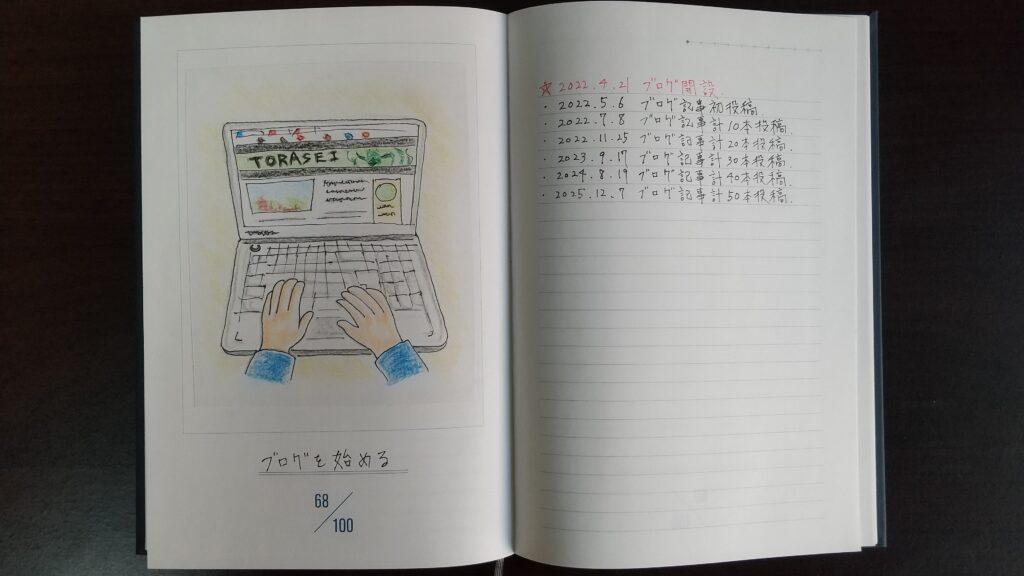 TORASEI
ブログを始める
68/100
☆2022.4.21 ブログ開設.
・2022.5.6 ブログ記事初投稿.
・2022.7.8 ブログ記事計10本投稿.
・2022.11.25 ブログ記事計20本投稿.
・2023.9.17 ブログ記事計30本投稿.
・2024.8.19 ブログ記事計40本投稿.
・2025.12.7 ブログ記事計50本投稿.